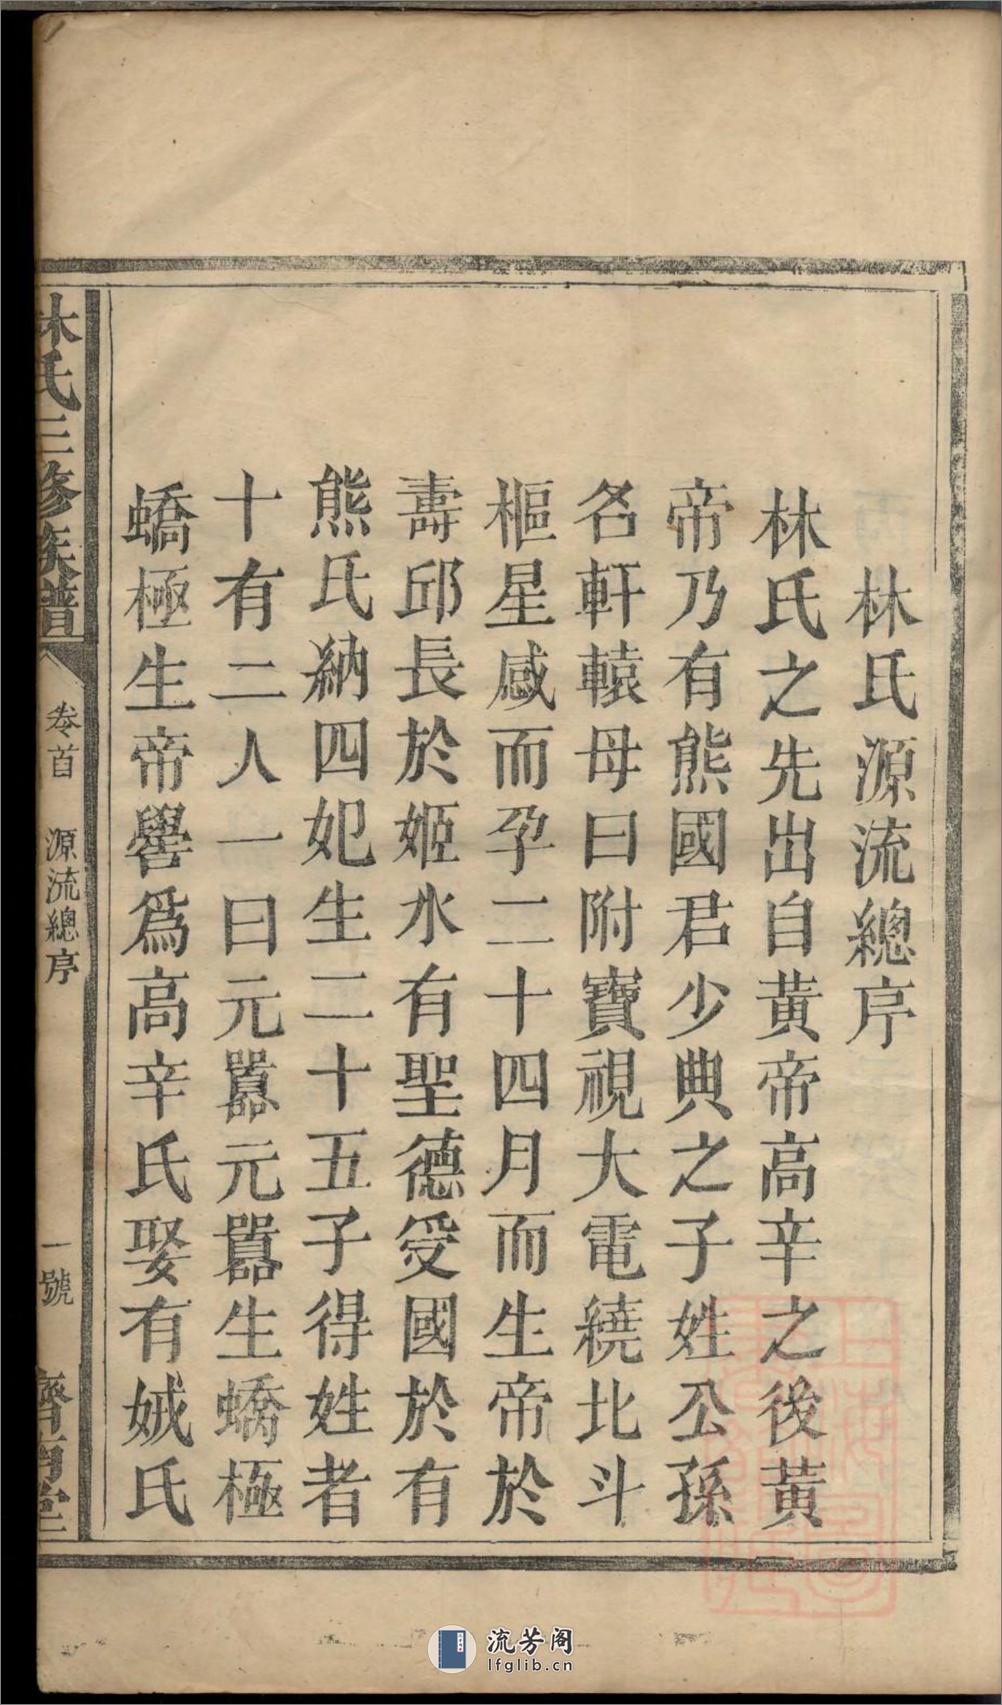 林氏源流總序
林氏之先出自黃帝高辛之後黃
帝乃有熊國君少典之子姓公孫
名軒轅母曰附寶視大電繞北斗
樞星感而孕二十四月而生帝於
壽邱長於姬水有聖德受國於有
熊氏納四妃生二十五子得姓者
十有二人一曰元囂元囂生蟜極
蟜極生帝嚳爲高辛氏娶有娀氏
林氏三修族譜
卷首
源流總序
一號
濟南堂
流芳阁
lfglib.cn